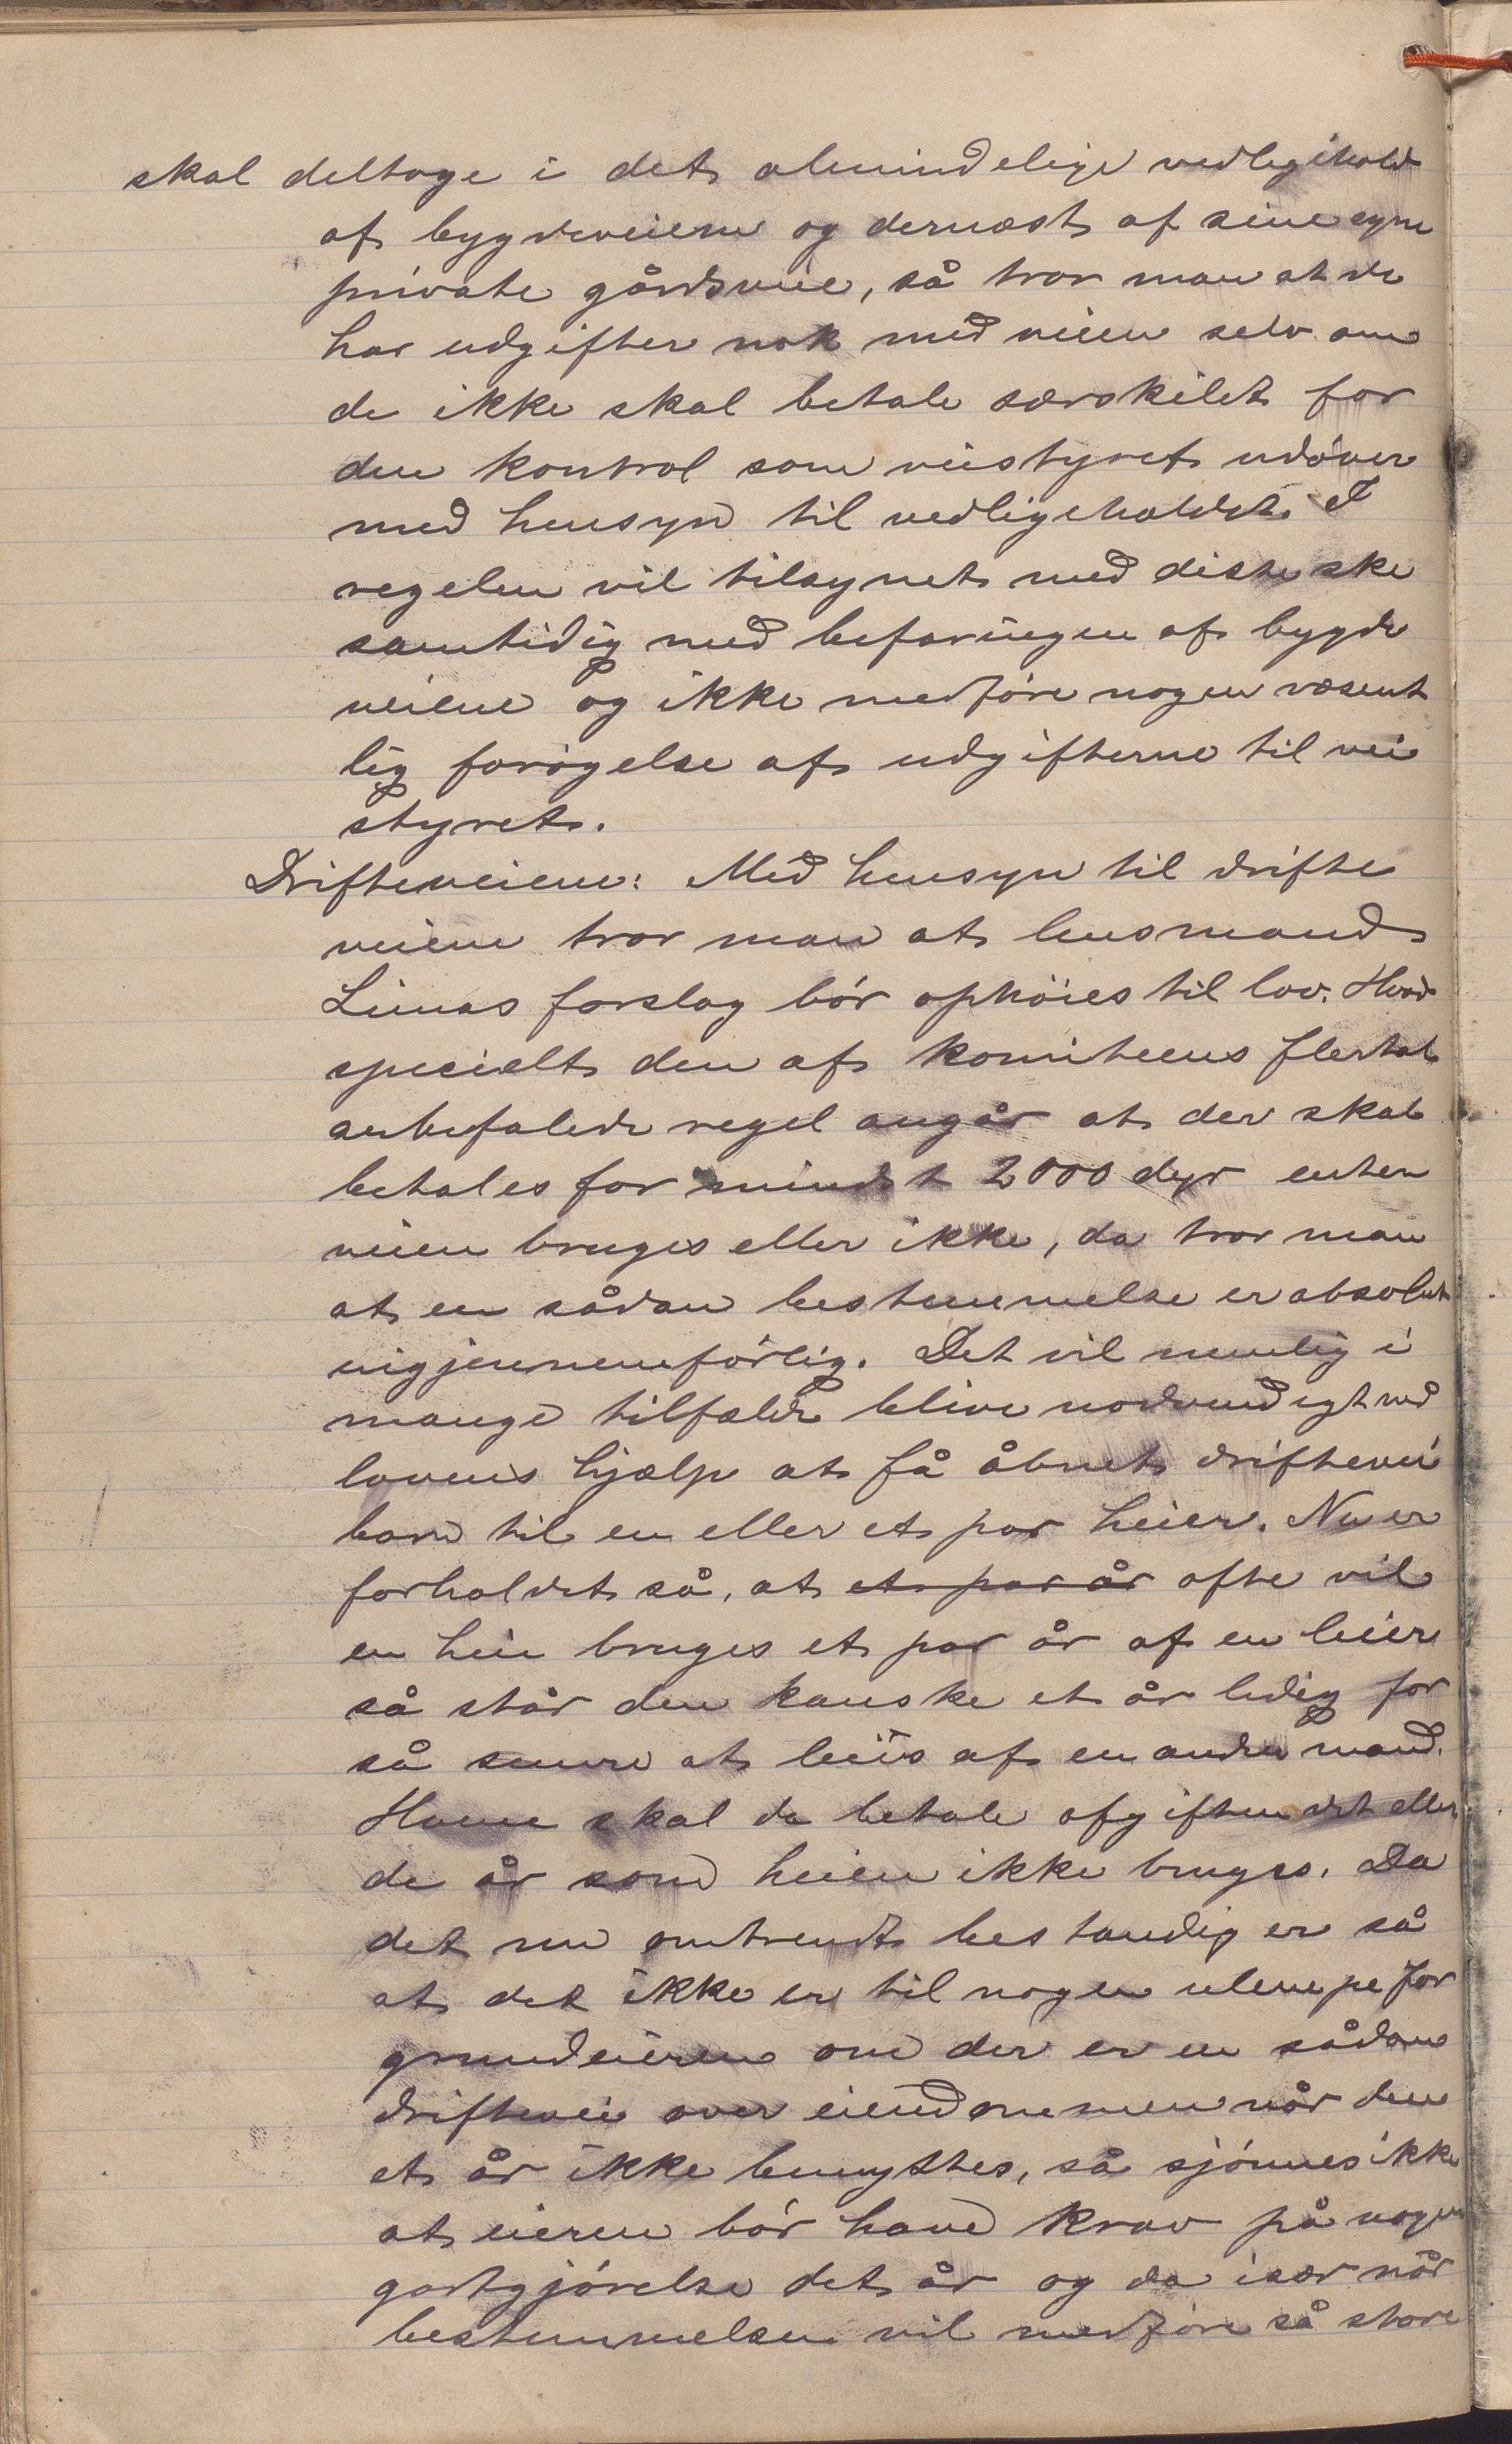 skal deltage i det almindelige vedligehold
af bygdeveiene og dernæst af sine egne
private gårdsveie, så tror man at de
har udgifter nok med veien selv om
de ikke skal betale særskildt for
den kontrol som veistyret udöver
med hensyn til vedligeholdet. I
regelen vil tilsynet med disse ske
samtidig med befaringen af bygde
veiene og ikke medføre nogen væsent
lig forögelse af udgifterne til vei
styret.
Drifteveiene: Med hensyn til drifte
veiene tror man at lensmand
Limas forslag bör ophöies til lov. Hvad
specielt den af komiteens flertal
anbefalede regel angår at der skal
betales for mindst 2000 dyr enten
veien bruges eller ikke, da tror man
at en sådan bestemmelse er absolut
uigjennemförlig. Det vil nemlig i
mange tilfælde blive nødvendigt ved
lovens hjælp at få åbnet driftevei
bare til en eller et par heier. Nu er
forholdet så, at et par år ofte vil
en hei bruges et par år af en leier
så står den kanske et år ledig for
så senere at leies af en anden mand.
Hvem skal da betale afgiften det eller
de år som heien ikke bruges. Da
det nu omtrendt bestandig er så
at det ikke er til nogen ulempe for
grundeieren om der er en sådan
driftevei over eiendommen når den
et år ikke benyttes, så sjönnes ikke
at eieren bör have krav på nogen
godtgjörelse det år og da især når
bestemmelsen vil medføre så store